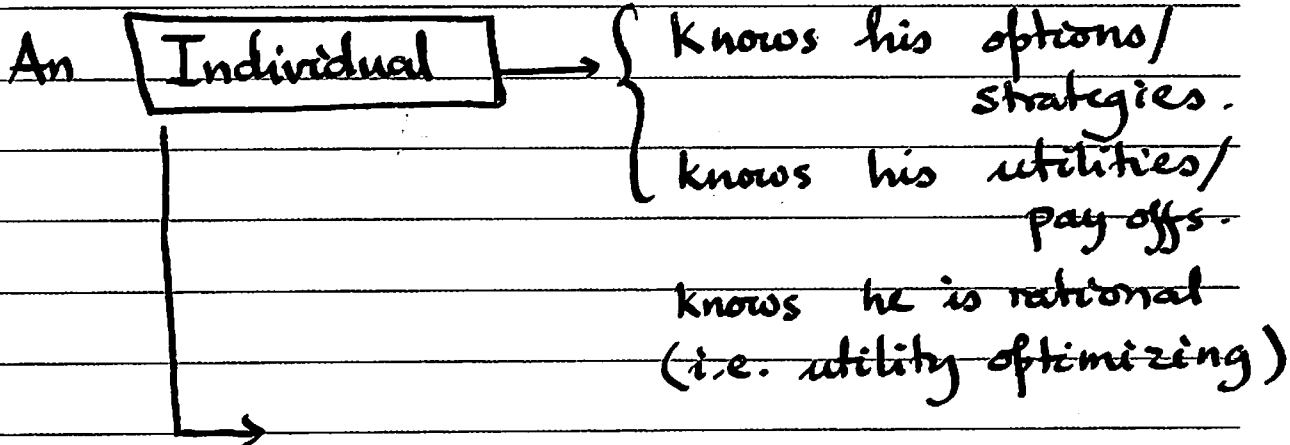 An Individual Knows his options/
strategies.
knows his utilities/
pay offs.
knows he is rational
(i.e. utility optimizing)